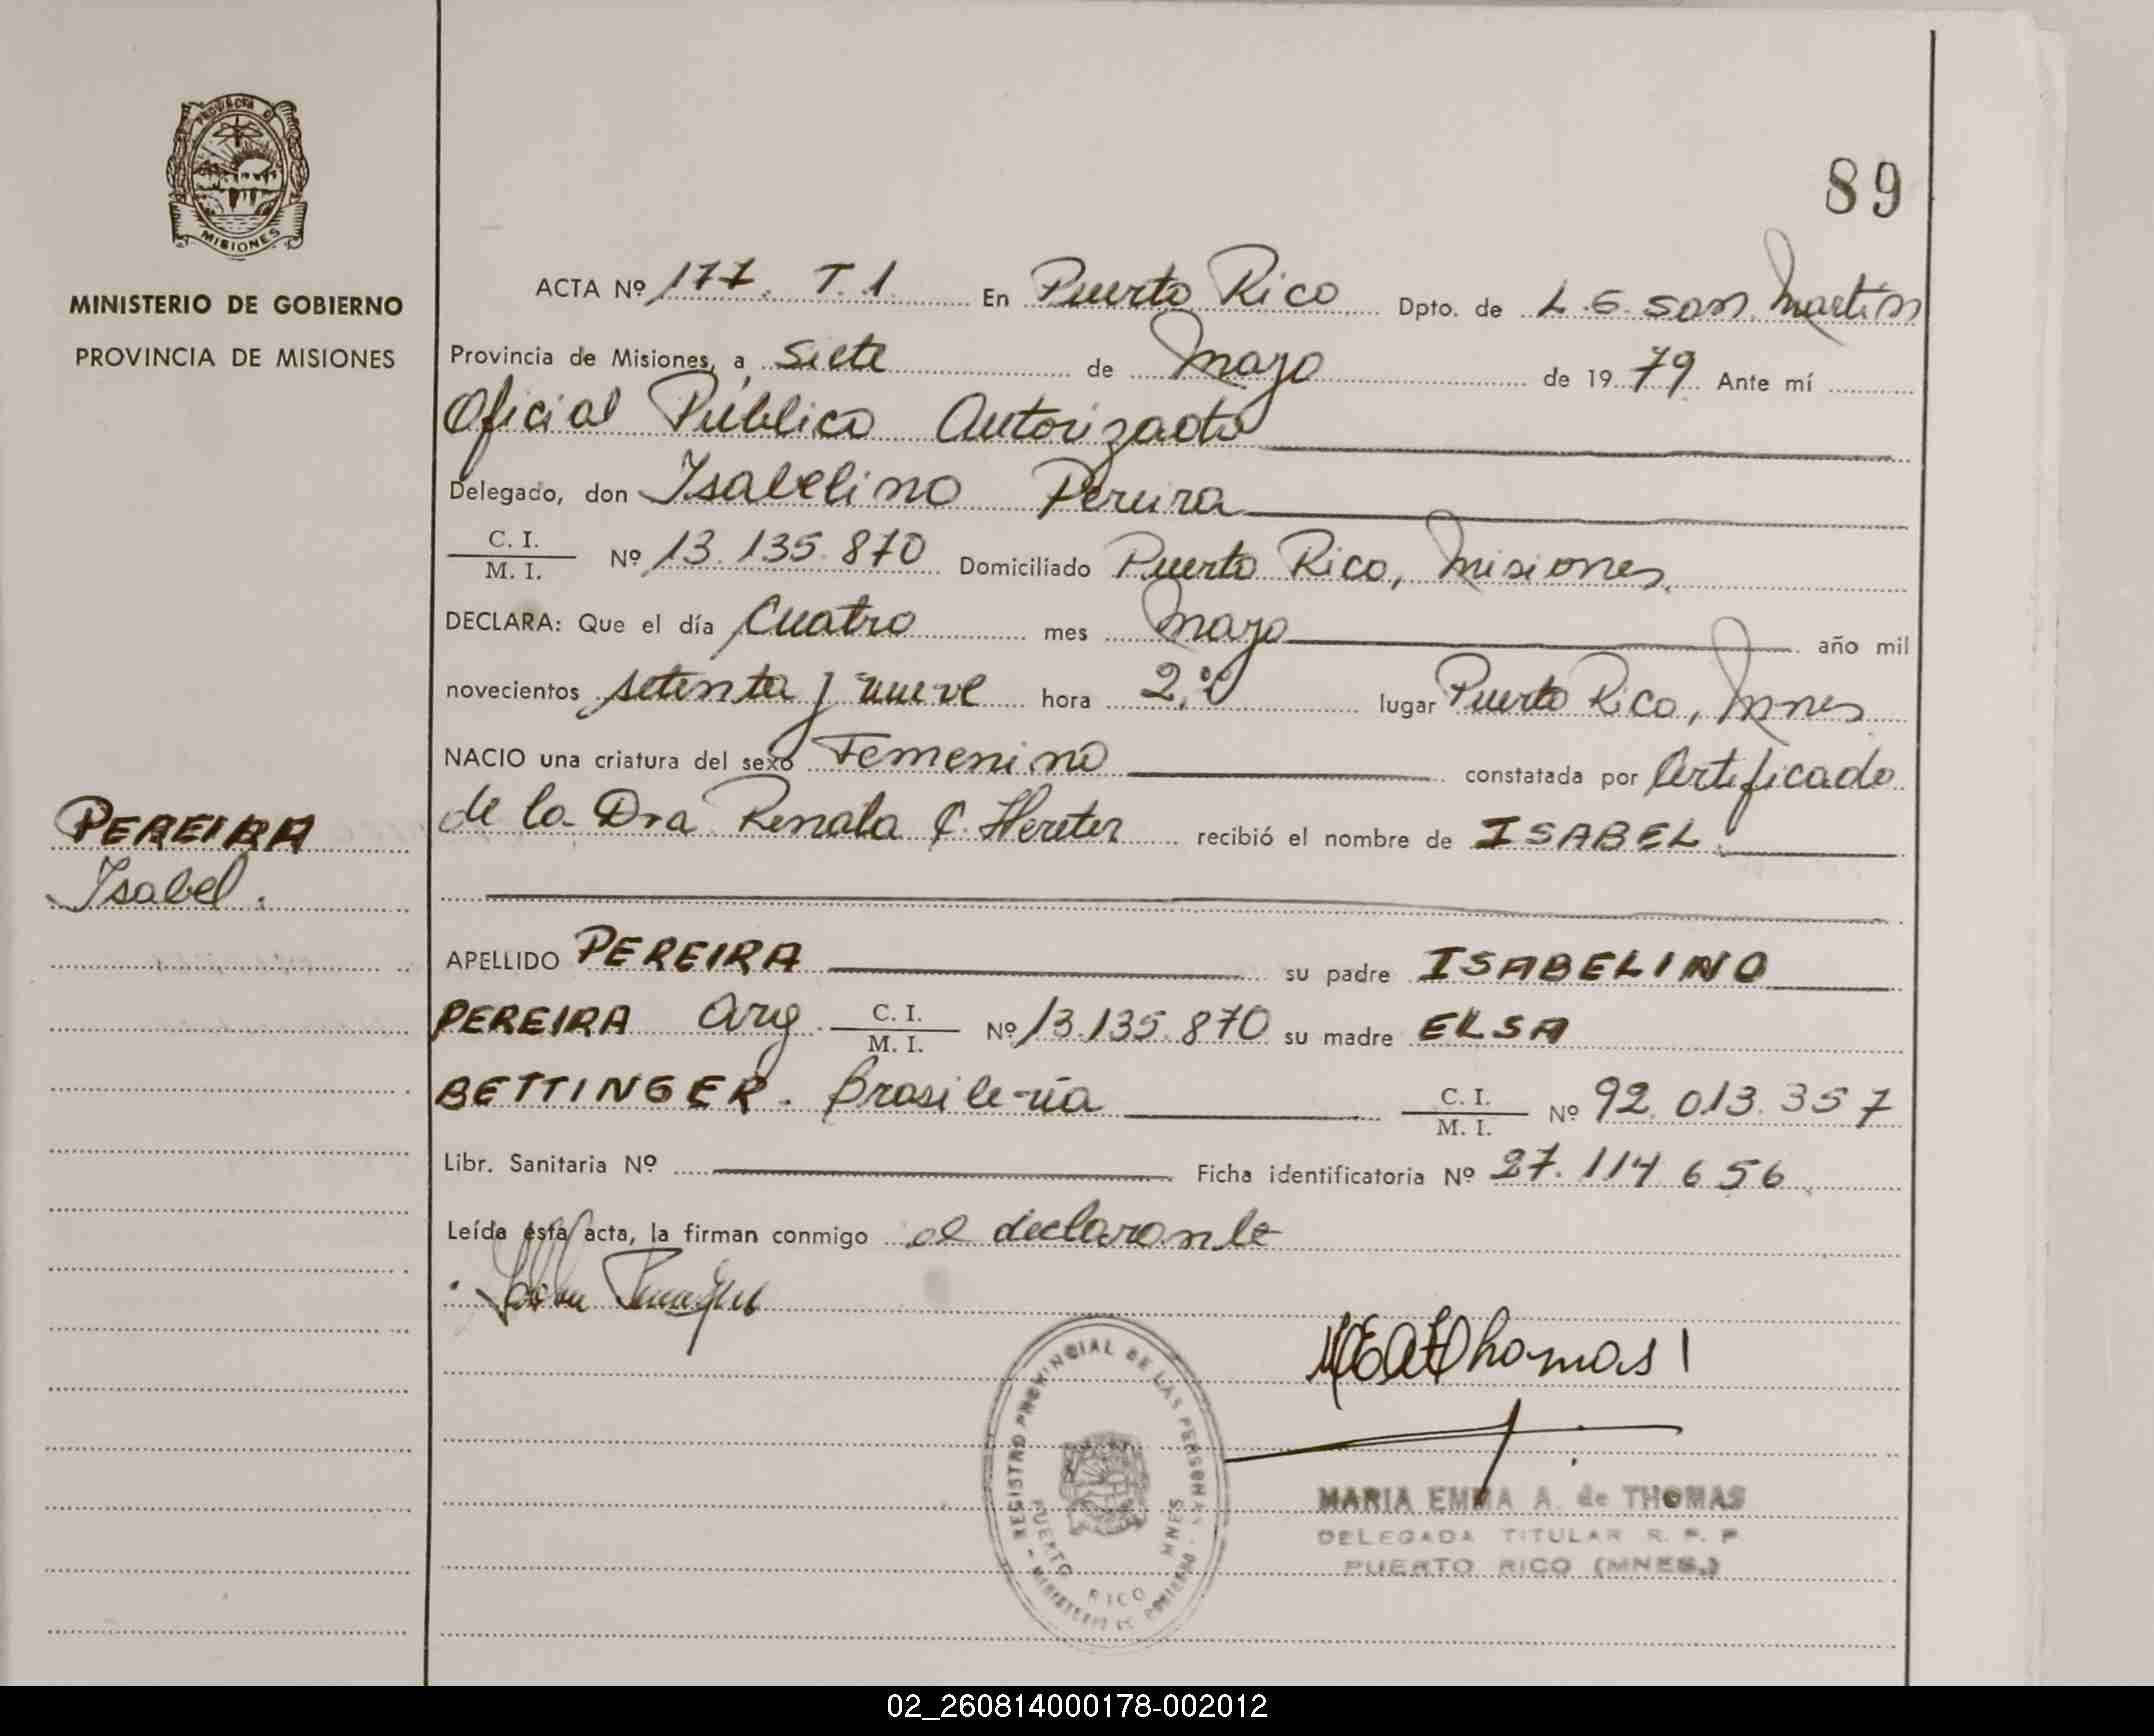 PROVINCIA DE
MISIONES
MINISTERIO DE GOBIERNO
PROVINCIA DE MISIONES
89
ACTA Nº 177. T. 1. En Puerto Rico Dpto. de L. G. San Martín
Provincia de Misiones, a siete de mayo de 1979 Ante mí
Oficial Público Autorizado
Delegado, don Isabelino Pereira
C. I.
M. I. Nº 13.135.870 Domiciliado Puerto Rico, Misiones.
DECLARA: Que el día Cuatro mes mayo año mil
novecientos setenta y nueve hora 2, lugar Puerto Rico, Mnes
NACIO una criatura del sexo Femenino constatada por Certificado
de la Dra Renata C. Hereter recibió el nombre de ISABEL.
PEREIRA
Isabel.
APELLIDO PEREIRA su padre ISABELINO
PEREIRA Arg. C. I.
M. I. Nº 13.135.870 su madre ELSA
BETTINGER. Brasileña C. I.
M. I. Nº 92.013.357
Libr. Sanitaria Nº Ficha identificatoria Nº 27.114.656
Leída ésta acta, la firman conmigo el declarante
Thomas
REGISTRO PROVINCIAL DE LAS PERSONAS
PUERTO RICO MNES
MINISTERIO DE GOBIERNO
MARIA EMMA A. de THOMAS
DELEGADA TITULAR R. P. P.
PUERTO RICO (MNES.)
02_260814000178-002012